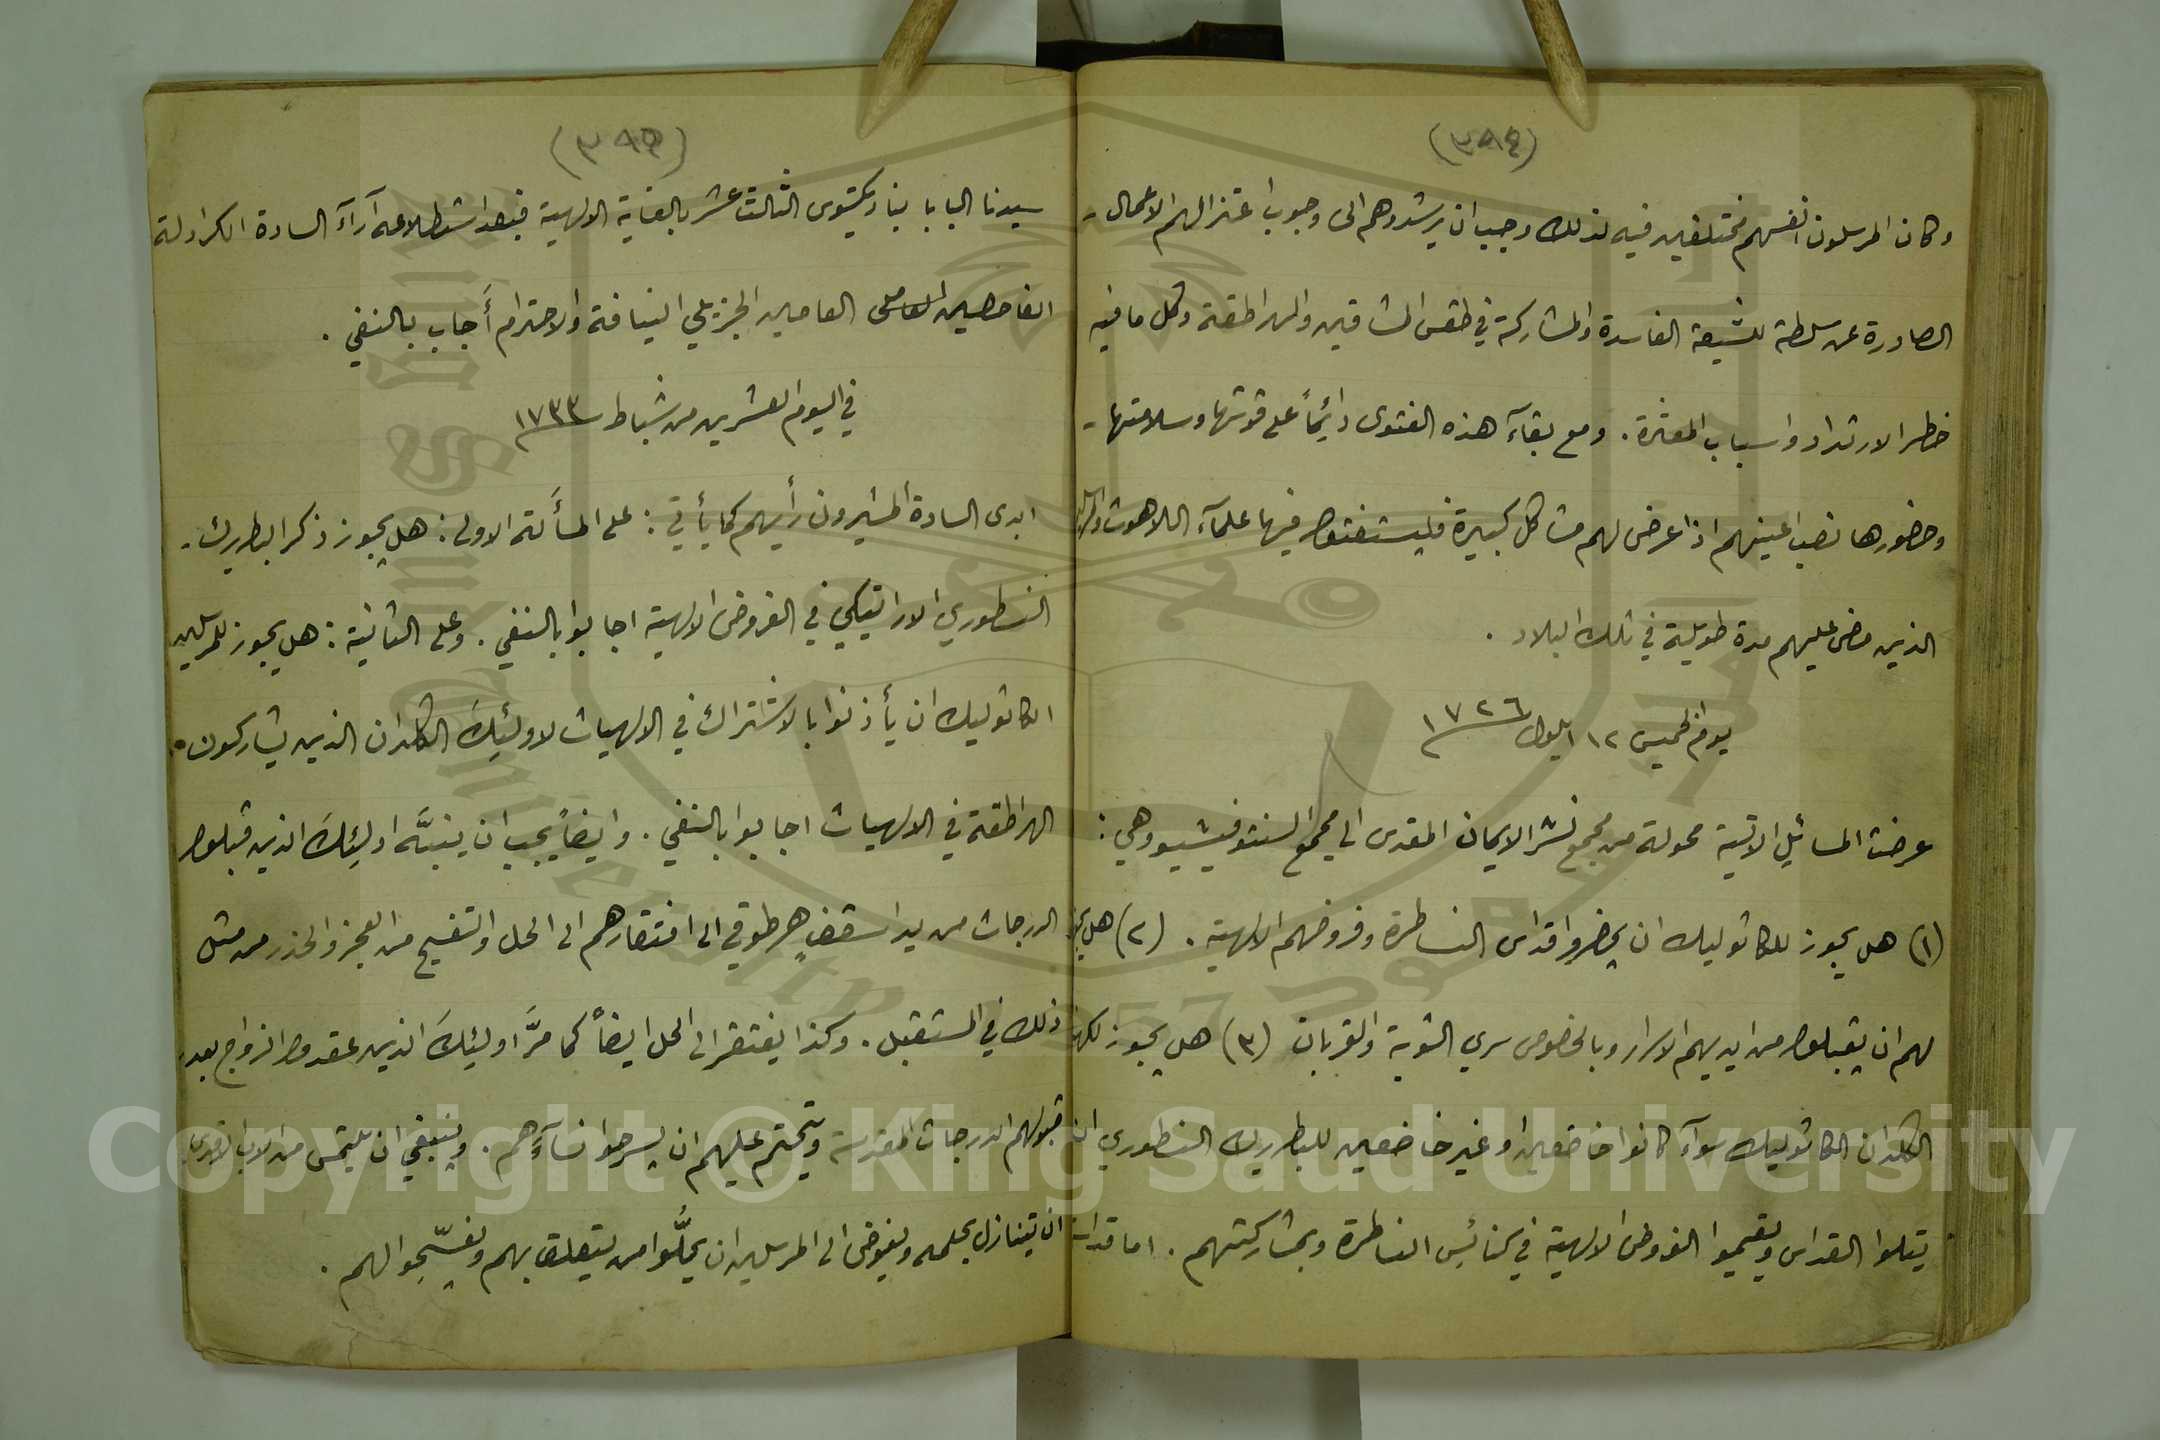 وكان المرسلون انفسهم مختلفين فيه لذلك وجب ان يرشدوهم الى وجوب اعتزالهم الاعمال
الصادرة عن سلطة للشيعة الفاسدة والمشاركة في طقس المشاقين والهراطقة وكل ما فيه
خطر الارتداد واسباب المعثرة . ومع بقآء هذه الفتوى دائماً على قوتها وسلامتها
وحضورها نصب اعينهم اذا عرض لهم مشاكل كبيرة فليستفتوا فيها علمآء اللاهوت
الذين مضى عليهم مدة طويلة في تلك البلاد .
يوم الخميس ١٢ ايلول ١٧٢٦
عرضت المسائل الاتية محولة من مجمع نشر الايمان المقدس الى مجمع السنتوفيشيو وهي :
(١) هل يجوز للكاثوليك ان يحضروا قداس النساطرة وفروضهم الالهية . (٢) هل يجوز
لهم ان يقبلوا من ايديهم الاسرار وبالخصوص سري التوبة والقربان (٣) هل يجوز لكهنة
الكلدان الكاثوليك سوآء كانوا خاضعين او غير خاضعين للبطريرك النسطوري ان
يتلوا القداس ويقيموا الفروض الالهية في كنائس النساطرة وبمشاركتهم . اما قداسة
سيدنا البابا بناديكتوس الثالث عشر بالعناية الالهية فبعد استطلاعه آرآء السادة الكرادلة
الفاحصين العامين الجزيلي النيافة والاحترام أجاب بالنفي .
في اليوم العشرين من شباط ١٧٣٣
ابدى السادة المشيرون رأيهم كما يأتي : على المسألة الاولى : هل يجوز ذكر البطريرك
النسطوري الاراتيكي في الفروض الالهية اجابوا بالنفي . وعلى الثانية : هل يجوز للمرسلين
الكاثوليك ان يأذنوا بالاشتراك في الالهيات لاولئك الكلدان الذين يشاركون
الهراطقة في الالهيات اجابوا بالنفي . وايضاً يجب ان ينبَّه اولئك الذين قبلوا
الدرجات من يد اسقفٍ هرطوقي الى افتقارهم الى الحل والتفسيح من العجز والحذر من مثل
ذلك في المستقبل . وكذا يفتقر الى الحل ايضاً كما مرَّ اولئك الذين عقدوا الزواج بعد
قبولهم الدرجات المقدسة ويتحتم عليهم ان يسرحوا نسآءهم . وينبغي ان يلتمس من الاب الاقدس
ان يتنازل بحلمه ويفوض الى المرسلين ان يحلّوا من يتعلق بهم ويفسّحوا لهم .
Copyright © King Saud University
1957